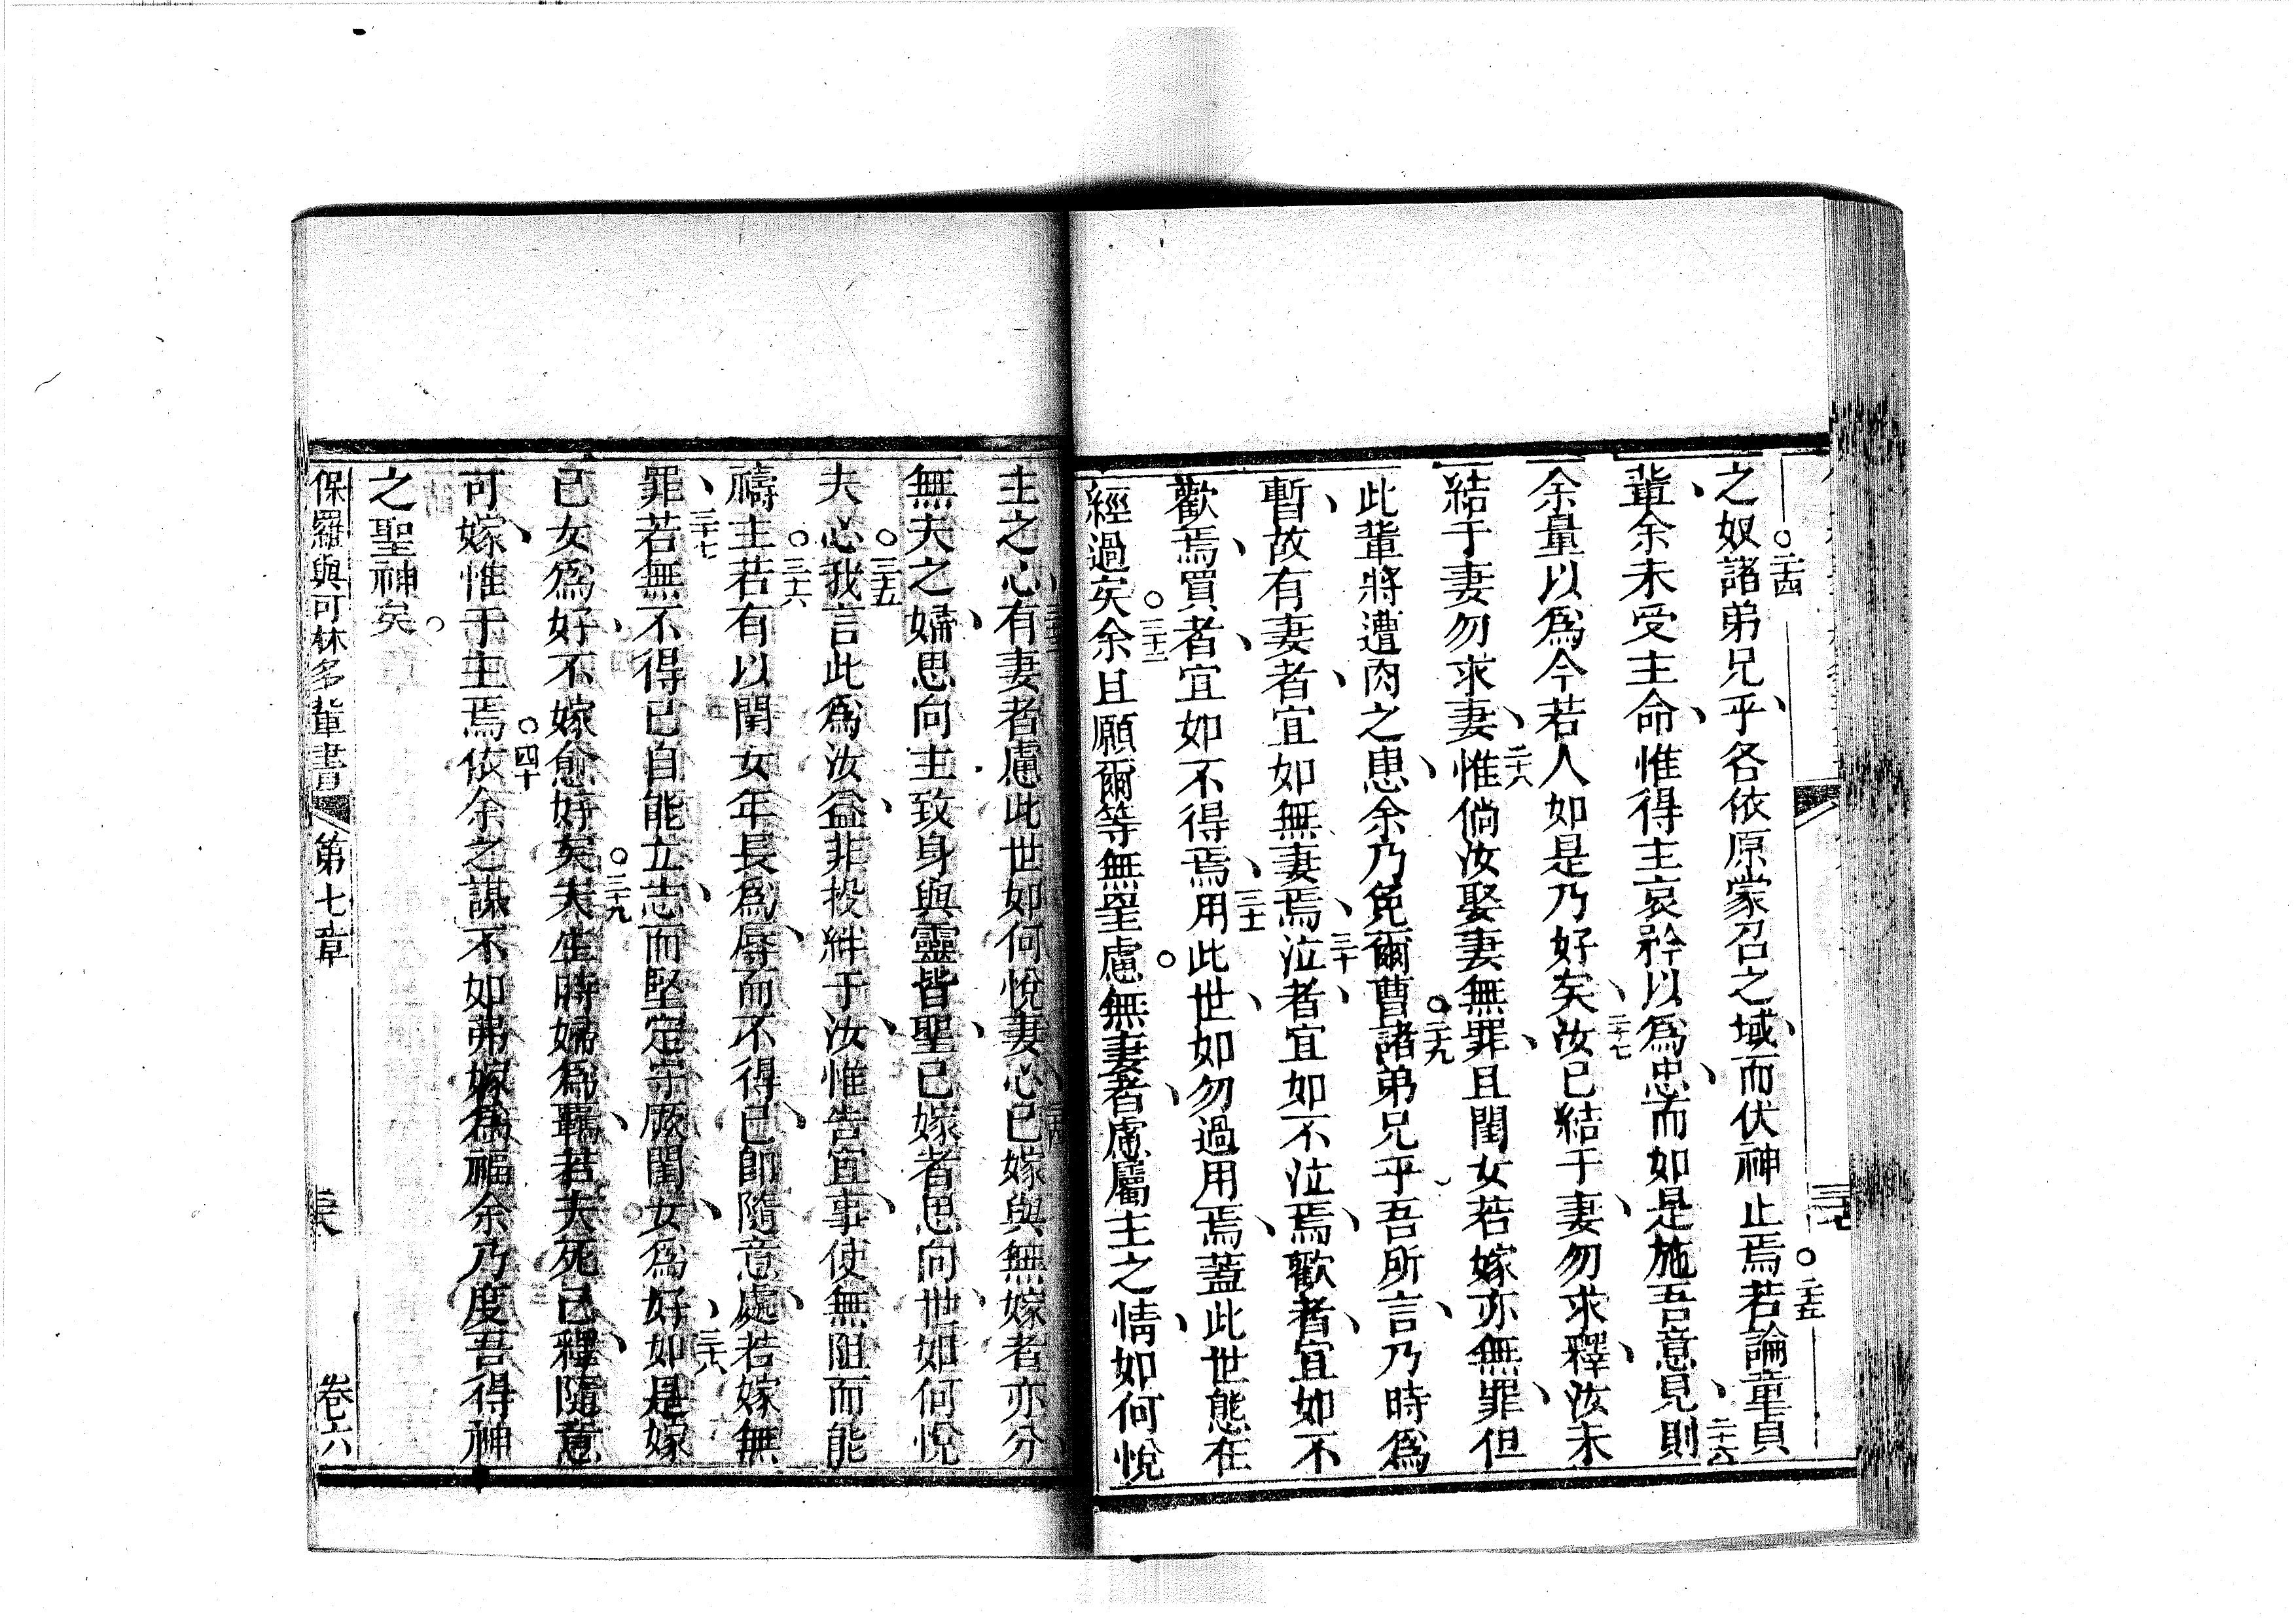 之奴諸弟兄乎各依原蒙召之域而伏神止焉若論童貞
二十四 二十五
輩余未受主命惟得主哀矜以為忠而如是施吾意見則
二十六
余量以為今若人如是乃好矣汝已結于妻勿求釋汝未
二十七
結于妻勿求妻惟倘汝娶妻無罪且閨女若嫁亦無罪但
二十八
此輩將遭肉之患余乃免爾曹諸弟兄乎吾所言乃時為
二十九
暫故有妻者宜如無妻焉泣者宜如不泣焉歡者宜如不
三十
歡焉買者宜如不得焉用此世如勿過用焉蓋此世態在
三十一
經過矣余且願爾等無罣慮無妻者慮屬主之情如何悅
三十二
主之心有妻者慮此世如何悅妻心已嫁與無嫁者亦分
無夫之婦思向主致身與靈皆聖已嫁者思向世如何悅
夫心我言此為汝益非投絆于汝惟告宜事使無阻而能
三十五
禱主若有以閨女年長為辱而不得已卽隨意處若嫁無
三十六
罪若無不得已自能立志而堅定守厥閨女為好如是嫁
三十七 三十八
已女為好不嫁愈好矣夫生時婦為羈若夫死已釋隨意
三十九
可嫁惟于主焉依余之謀不如弗嫁為福余乃度吾得神
四十
之聖神矣
保羅與可林多輩書 第七章 卷六